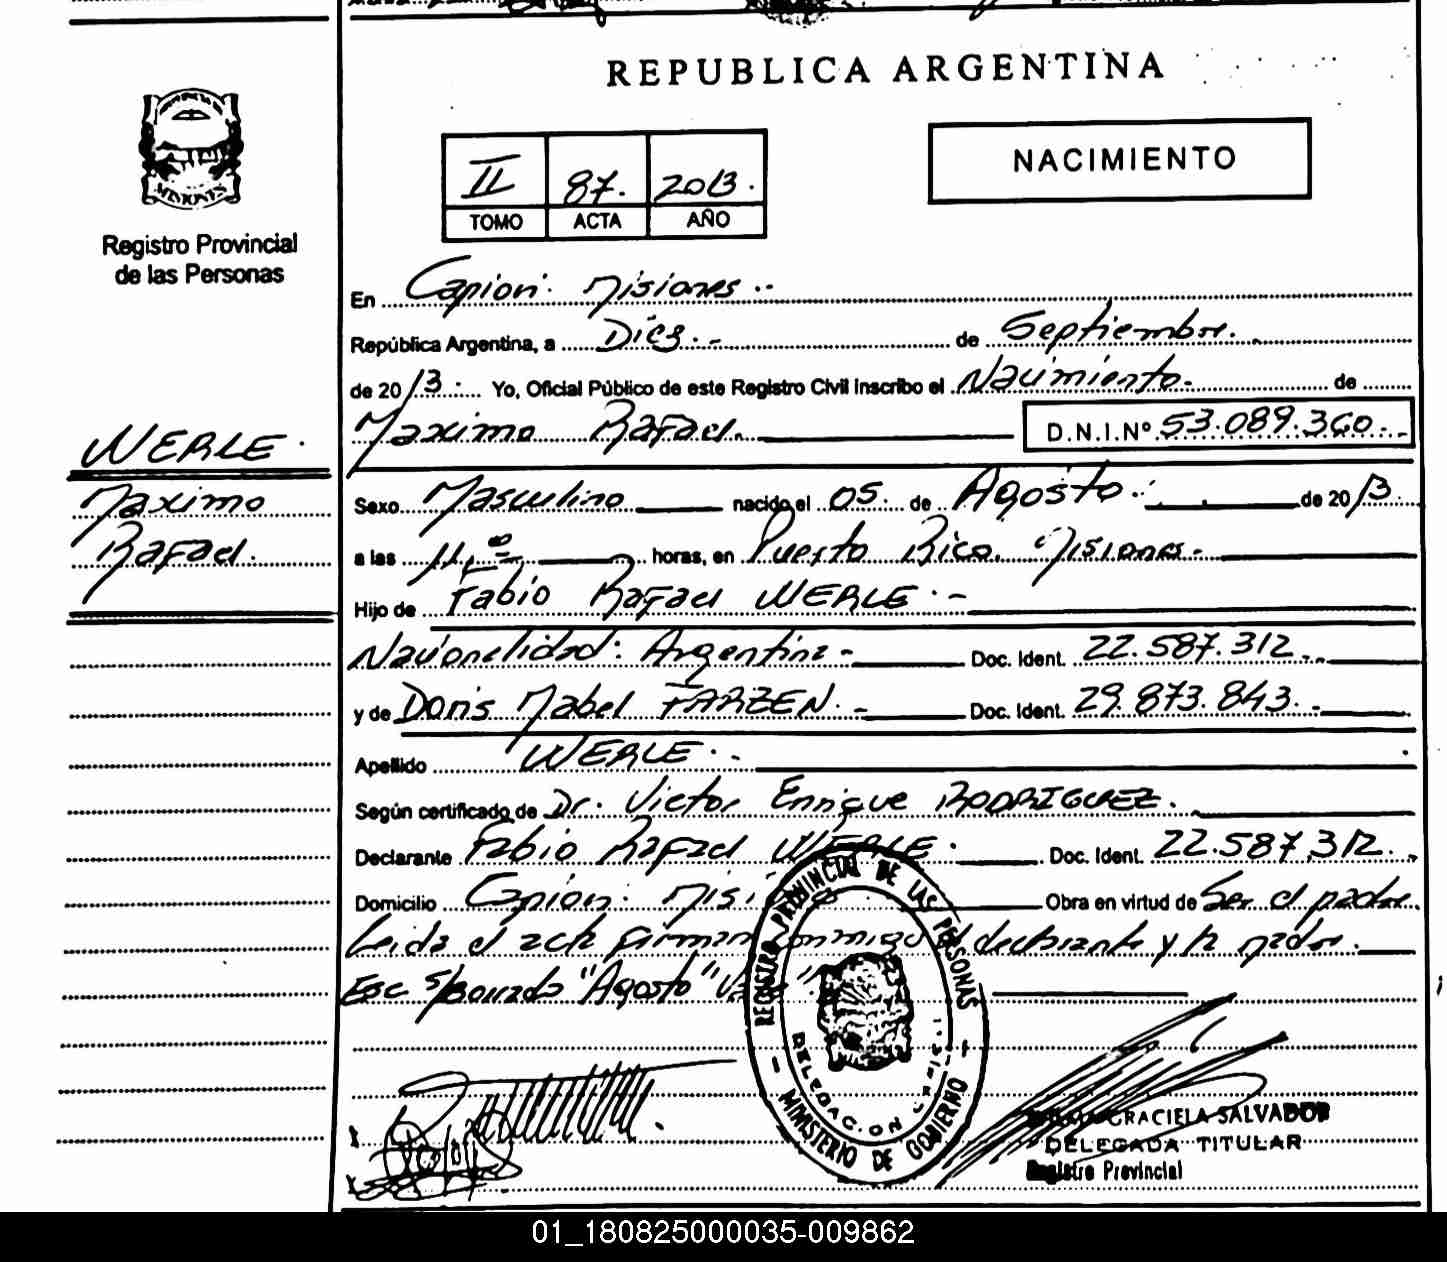 REPUBLICA ARGENTINA
II 87. 2013.
TOMO ACTA AÑO
NACIMIENTO
MISIONES
Registro Provincial
de las Personas
WERLE.
Maximo
Rafael.
En Capiovi. Misiones..
República Argentina, a Diez.- de Septiembre.
de 2013. Yo, Oficial Público de este Registro Civil inscribo el Nacimiento. de
Maximo Rafael. D.N.I.Nº 53.089.360.-
Sexo Masculino nacido el 05. de Agosto. de 2013.
a las 11, horas, en Puerto Rico. Misiones.
Hijo de Fabio Rafael WERLE.-
Nacionalidad: Argentina- Doc. Ident. 22.587.312.-
y de Doris Mabel TARZEN.- Doc. Ident. 29.873.843.-
Apellido WERLE.-
Según certificado de Dr. Victor Enrique RODRIGUEZ.
Declarante Fabio Rafael WERLE. Doc. Ident. 22.587.312.
Domicilio Capiovi. Obra en virtud de Ser el padre.
Leida el acta firman conmigo el declarante y la madre.
Esc s/borrado "Agosto"
REGISTRO PROVINCIAL DE LAS PERSONAS
DELEGACION
- MINISTERIO DE GOBIERNO -
GRACIELA SALVADOR
DELEGADA TITULAR
Registro Provincial
01_180825000035-009862